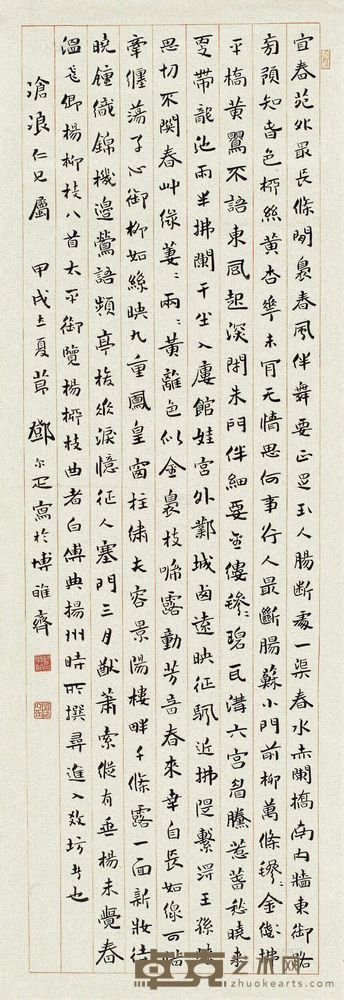 宜春苑外最長條閒裊春風伴舞要正是玉人腸斷處一渠春水赤闌橋南內牆東御路
旁預知春色桺絲黃杏華未肯无情思何事行人最斷腸蘇小門前柳萬條毿毿金綫拂
平橋黃鸎不語東風起深閉朱門伴細要金縷毿毿碧瓦溝六宮眉黛惹香愁晚來
更帶龍池雨半拂闌干半入廔館娃宮外鄴城西遠映征帆近拂隄繫得王孫歸
思切不關春艸綠萋萋兩兩黃離色似金裊枝啼露動芳音春來幸自長如線可惜
牽纏蕩子心御柳如絲映九重鳳皇窗柱繡夫容景陽樓畔千條露一面新妝待
曉鐘織錦機邊鶯語頻亭梭垂淚憶征人塞門三月猷蕭索從有垂楊未覺春
溫飛卿楊柳枝八首太平御覽楊桺枝曲者白傅典揚州時所撰尋進入教坊者也
滄浪仁兄屬 甲戌立夏節 鄧尔疋寫於博雅齋
卓克艺术网
www.zhuokearts.com